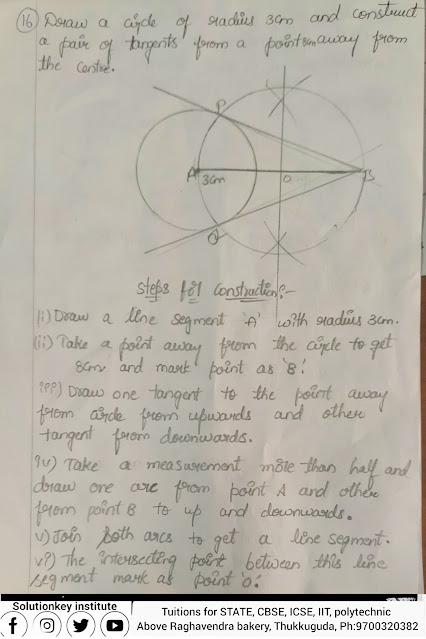 16) Draw a circle of radius 3cm and construct
a pair of tangents from a point 8cm away from
the centre.
P
A 3cm O B
Q
Steps for constraction:-
(i) Draw a line segment 'A' with radius 3cm.
(ii) Take a point away from the circle to get
8cm and mark point as 'B'.
iii) Draw one tangent to the point away
from circle from upwards and other
tangent from downwards.
iv) Take a measurement more than half and
draw one arc from point A and other
from point B to up and downwards.
v) Join both arcs to get a line segment.
vi) The intersecting point between this line
segment mark as point 'O'.
Solutionkey institute
Tuitions for STATE, CBSE, ICSE, IIT, polytechnic
Above Raghavendra bakery, Thukkuguda, Ph:9700320382